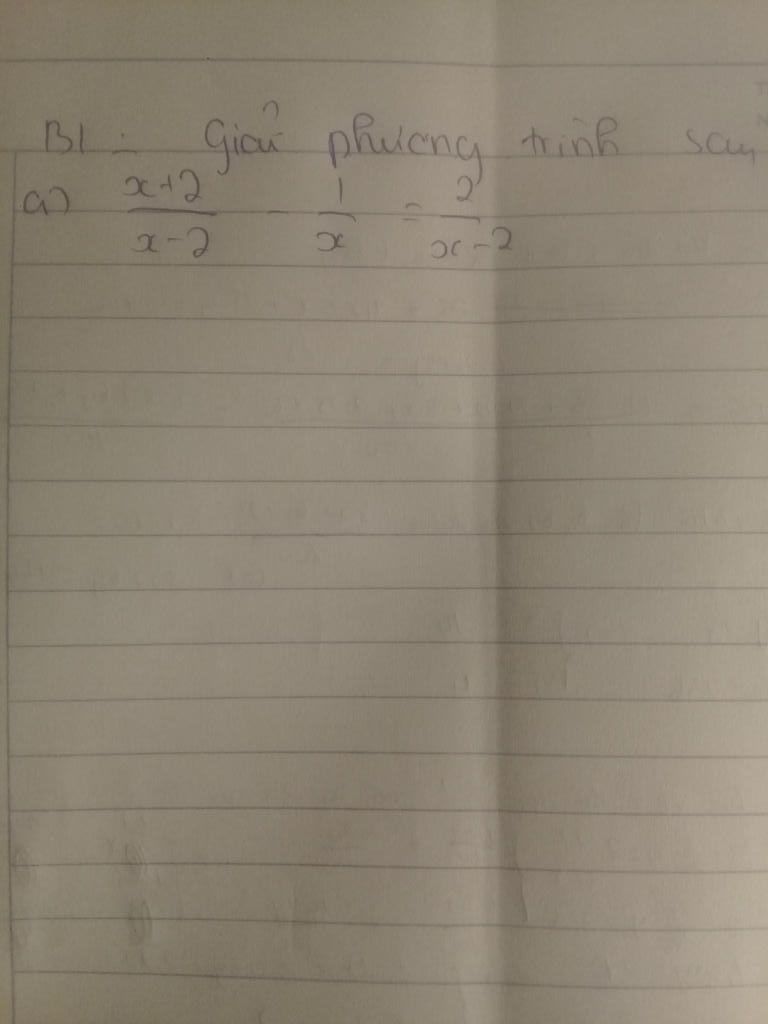 B1: Giải phương trình sau
a) \frac{x+2}{x-2} - \frac{1}{x} = \frac{2}{x-2}